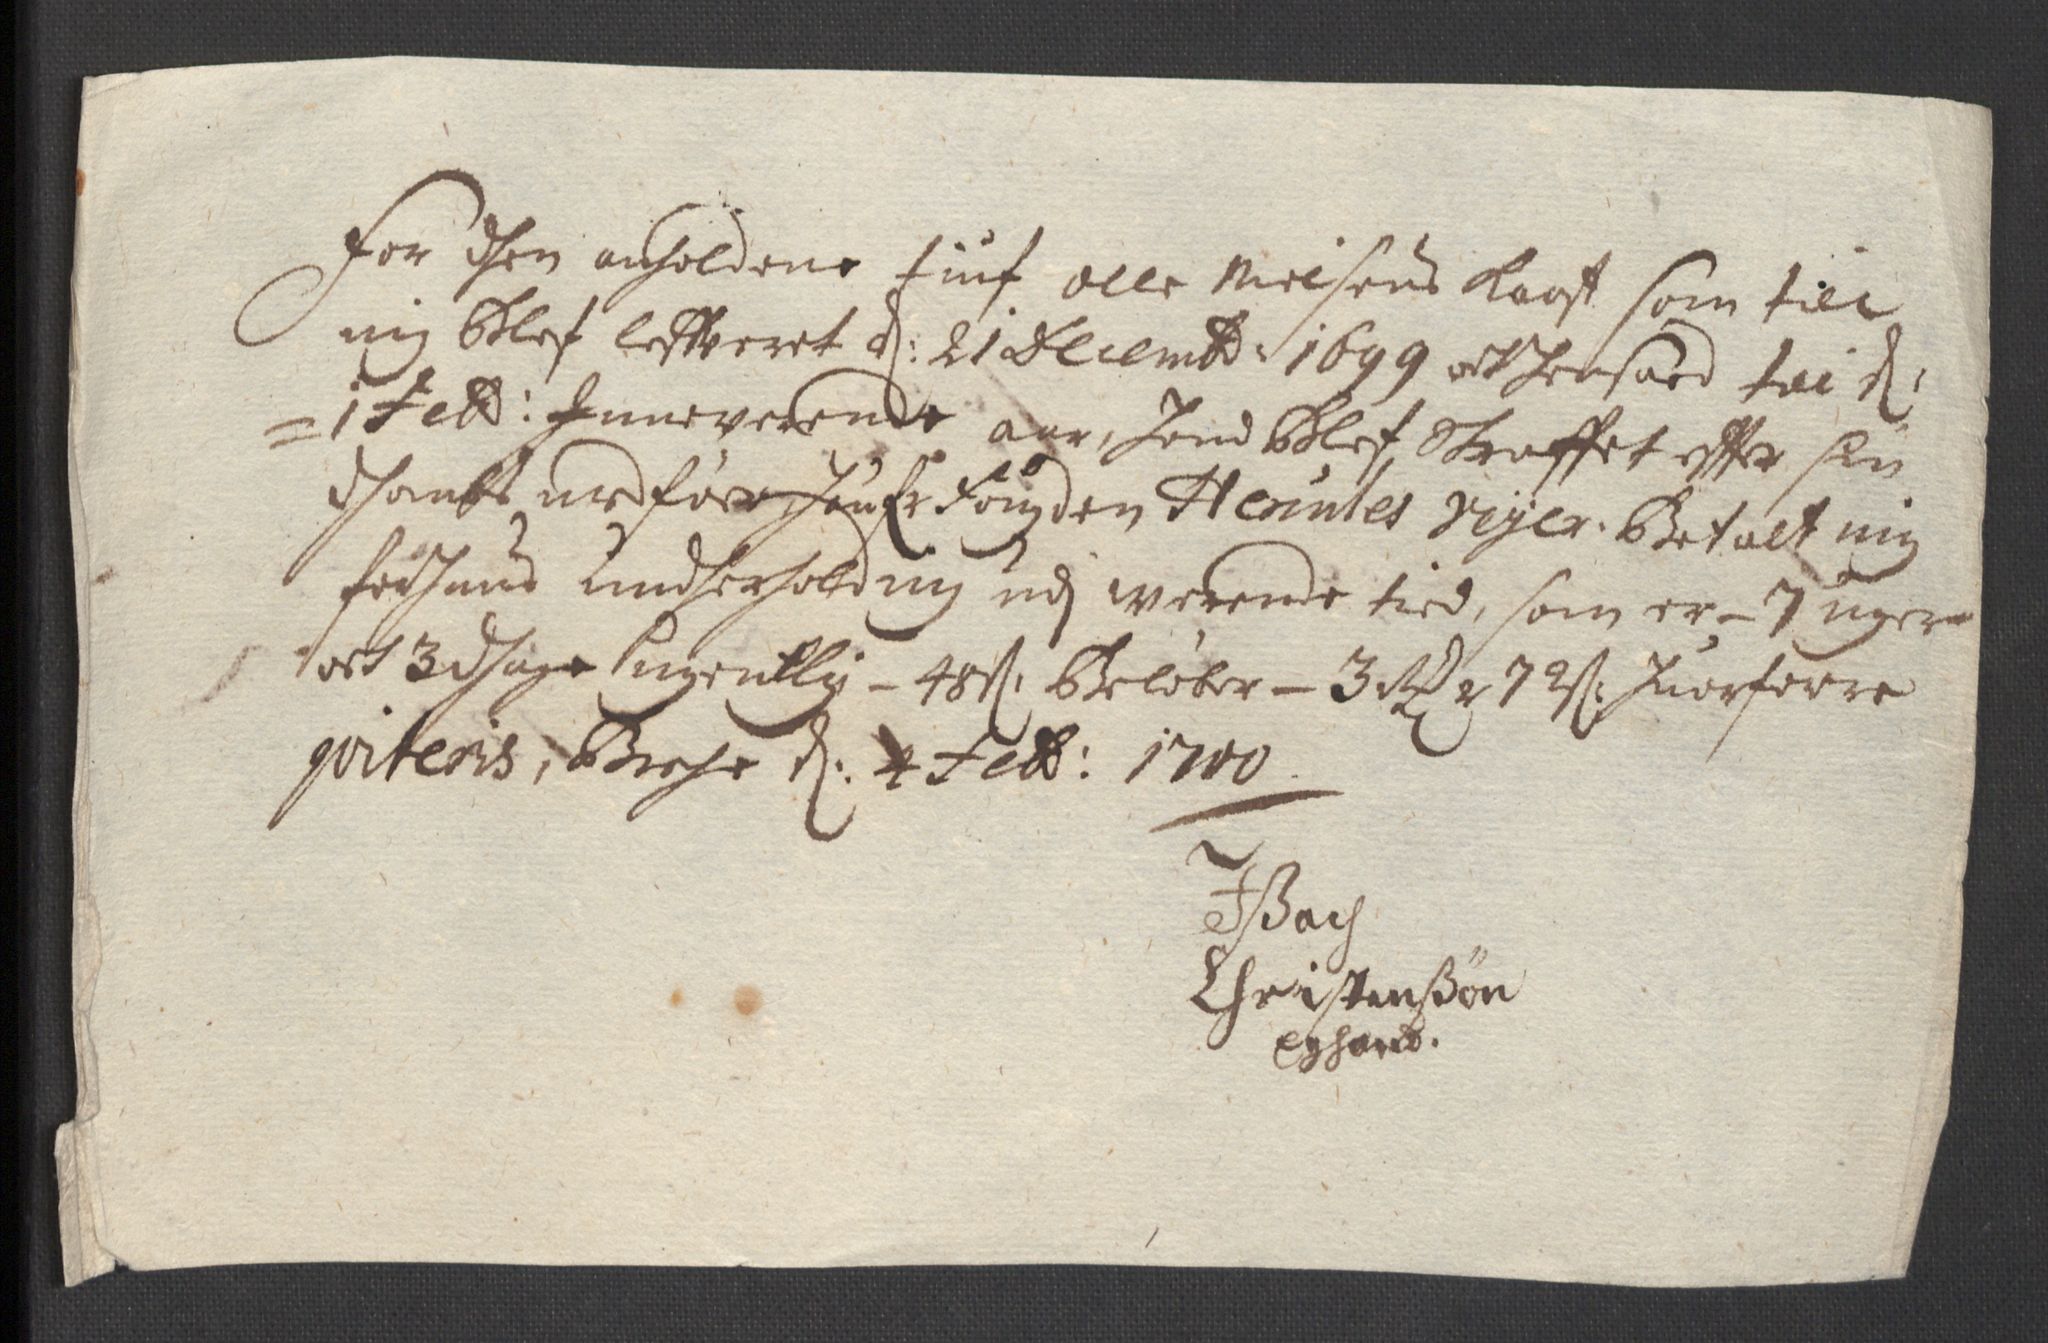 For dhen anholdene tiuf Olle Nielsens Kaast som till
mig blef leftveret d: 21 Decembr: 1699 oc till d:
= 1 Febr: Inneverende aar, hand blef straffet efter sin
dhombs ved for Fougden Herinles Vejer. Betalt mig
for hans underholdning udj werende tied, som er – 7 uger
oc 3 dhage ugentlig – 48 s: Beløber – 3 Rd 72 s: huorfore
qviteris, Berge d: 4 Febr: 1700
J Bach
Christensøn
Eghand.